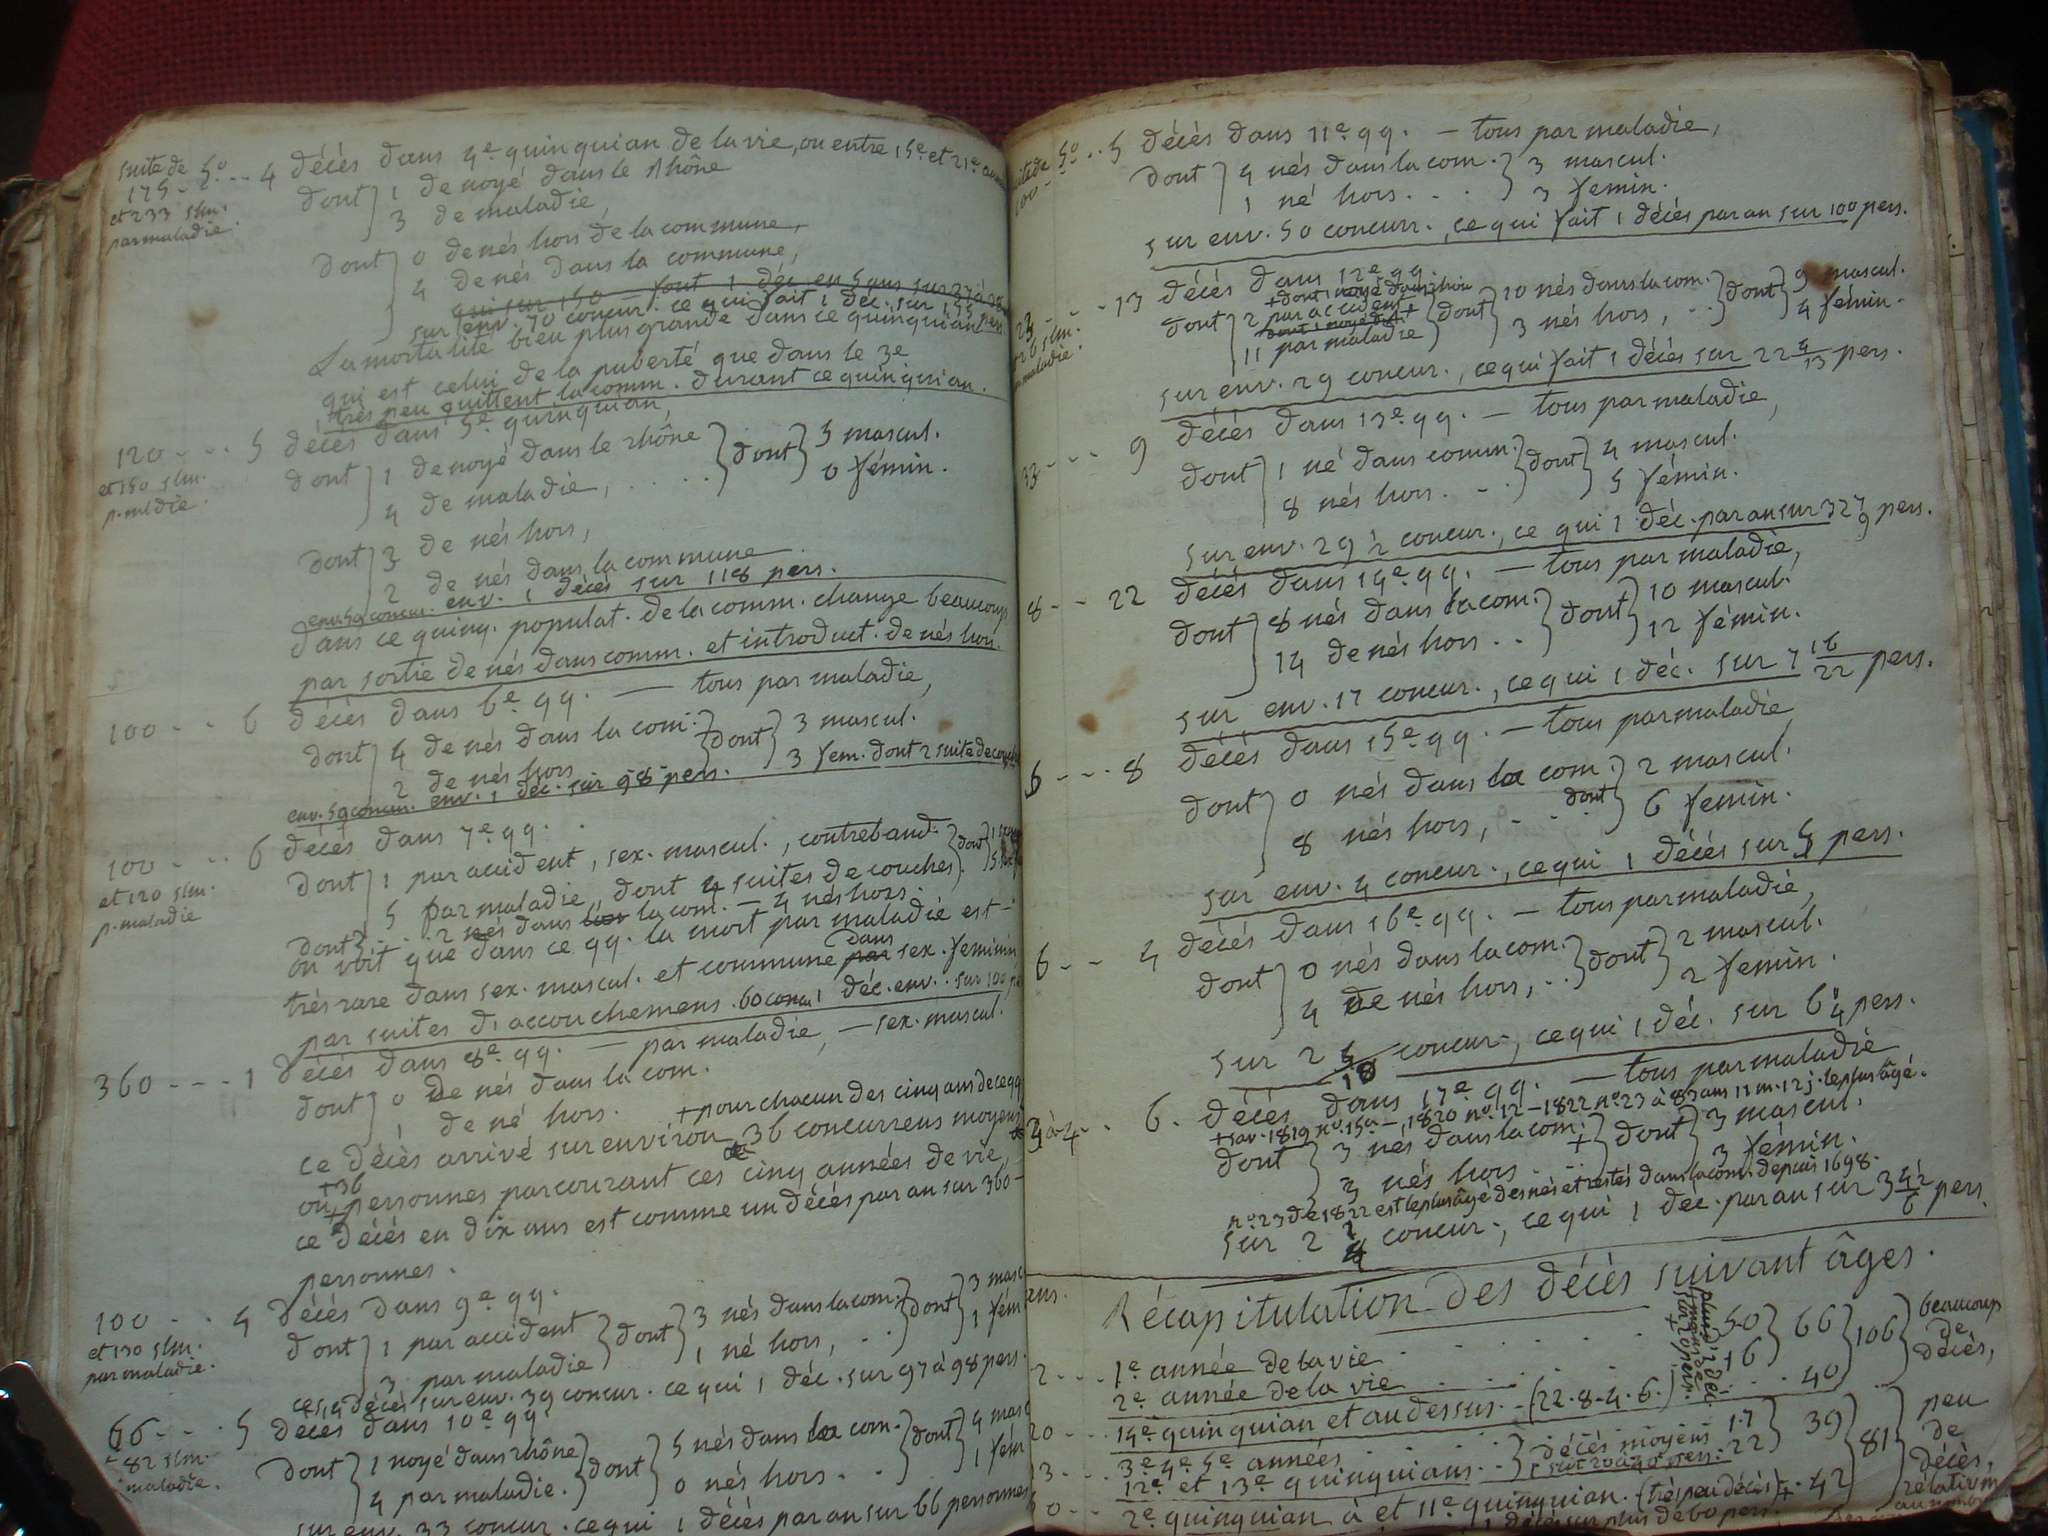 suite de 5º
175 - - - 4 décès dans 4e quinquian de la vie, ou entre 15e et 21e
et 233 slm.
par maladie.
dont 1 de noyé dans le Rhône
3 de maladie,
dont 0 de nés hors de la commune,
4 de nés dans la commune,
sur env. 70 concur. ce qui fait 1 déc. sur 175 pers.
La mortalité bien plus grande dans ce quinquian
qui est celui de la puberté que dans le 3e
très peu quittent la comm. durant ce quinquian.
120 - - - 5 décès dans 5e quinquian,
et 150 slm.
p. mldie.
dont 1 de noyé dans le rhône
4 de maladie, dont 5 mascul.
0 fémin.
dont 3 de nés hors,
2 de nés dans la commune.
env. 59 concur. env. 1 décès sur 118 pers.
dans ce quinq. populat. de la comm. change beaucoup
par sortie de nés dans comm. et introduct. de nés hors.
100 - - - 6 décès dans 6e qq. — tous par maladie,
dont 4 de nés dans la com. dont 3 mascul.
2 de nés hors 3 fem. dont 2 suite de
env. 59 concur. env. 1 déc. sur 98 pers.
100 - - - 6 décès dans 7e qq.
et 120 slm.
p. maladie
dont 1 par accident, sex. mascul., contreband.
5 par maladie, dont 4 suites de couches dont
dont 2 nés dans la com. — 4 nés hors.
on voit que dans ce qq. la mort par maladie est
très rare dans sex. mascul. et commune dans sex. feminin
par suites d'accouchemens. 60 concu. 1 déc. env. sur 100
360 - - - 1 décès dans 8e qq. — par maladie, — sex. mascul.
dont 0 de nés dans la com.
1 de né hors. + pour chacun des cinq ans de ce qq
ce décès arrivé sur environ 36 concurrens moyens
ou +36 personnes parcourant ces cinq années de vie,
ce décès en dix ans est comme un décès par an sur 360
personnes.
100 - - 4 décès dans 9e qq.
et 130 slm.
par maladie.
dont 1 par accident dont 3 nés dans la com. dont 3 masc
3 par maladie 1 né hors, 1 fém
ces 4 décès sur env. 39 concur. ce qui 1 déc. sur 97 à 98 pers.
66 - - - 5 décès dans 10e qq.
82 slm.
maladie.
dont 1 noyé dans rhône dont 5 nés dans la com. dont 4 masc
4 par maladie. 0 nés hors. 1 fém
sur env. 33 concur. ce qui 1 décès par an sur 66 personnes
suite de 5º
100 - - 5 décès dans 11e qq. — tous par maladie,
dont 4 nés dans la com. 3 mascul.
1 né hors. 3 femin.
sur env. 50 concurr., ce qui fait 1 décès par an sur 100 pers.
23 - - - 13 décès dans 12e qq.
slm.
maladie.
+ dont 1 noyé dans
dont 2 par accident + dont 10 nés dans la com. dont 9 mascul.
11 par maladie 3 nés hors, 4 fémin.
sur env. 29 concur., ce qui fait 1 décès sur 22 4/13 pers.
33 - - - 9 décès dans 13e qq. — tous par maladie,
dont 1 né dans comm. dont 4 mascul.
8 nés hors. 5 fémin.
sur env. 29 ½ concur., ce qui 1 déc. par an sur 32 7/9 pers.
8 - - 22 décès dans 14e qq. — tous par maladie,
dont 8 nés dans la com. dont 10 mascul.
14 de nés hors . . 12 fémin.
sur env. 17 concur., ce qui 1 déc. sur 7 16/22 pers.
6 - - - 8 décès dans 15e qq. — tous par maladie
dont 0 nés dans la com. 2 mascul.
8 nés hors, dont 6 femin.
sur env. 4 concur., ce qui 1 décès sur 5 pers.
6 - - 4 décès dans 16e qq. — tous par maladie,
dont 0 nés dans la com. dont 2 mascul.
4 de nés hors, 2 femin.
sur 2 5/10 concur., ce qui 1 déc. sur 6 ¼ pers.
3 à 4 - - 6. décès dans 17e qq. — tous par maladie
+ sav. 1819 nº 15 — 1820 nº 12 — 1822 nº 23 à 83 ans 11 m. 12 j. le plus âgé.
dont 3 nés dans la com. + dont 3 mascul.
3 nés hors 3 fémin.
nº 23 de 1822 est le plus âgé des nés et restés dans la com. depuis 1698.
sur 2 concur., ce qui 1 déc. par an sur 3 pers.
Récapitulation des décès suivant âges.
1e année de la vie . . . 50 66 106 beaucoup
2e année de la vie . . . 16 de
14e quinquian et au dessus. (22. 8. 4. 6.) . . 40 décès,
plus d'1 déc.
+ moins de
sur 20 pers.
3e 4e 5e années . . . décès moyens 17 39 81 peu
12e et 13e quinquians . . sur 20 à 40 pers. 22 de
2e quinquian à et 11e quinquian. (très peu décès) + . 42 décès,
relativm
au nombre
1 décès sur plus de 60 pers.